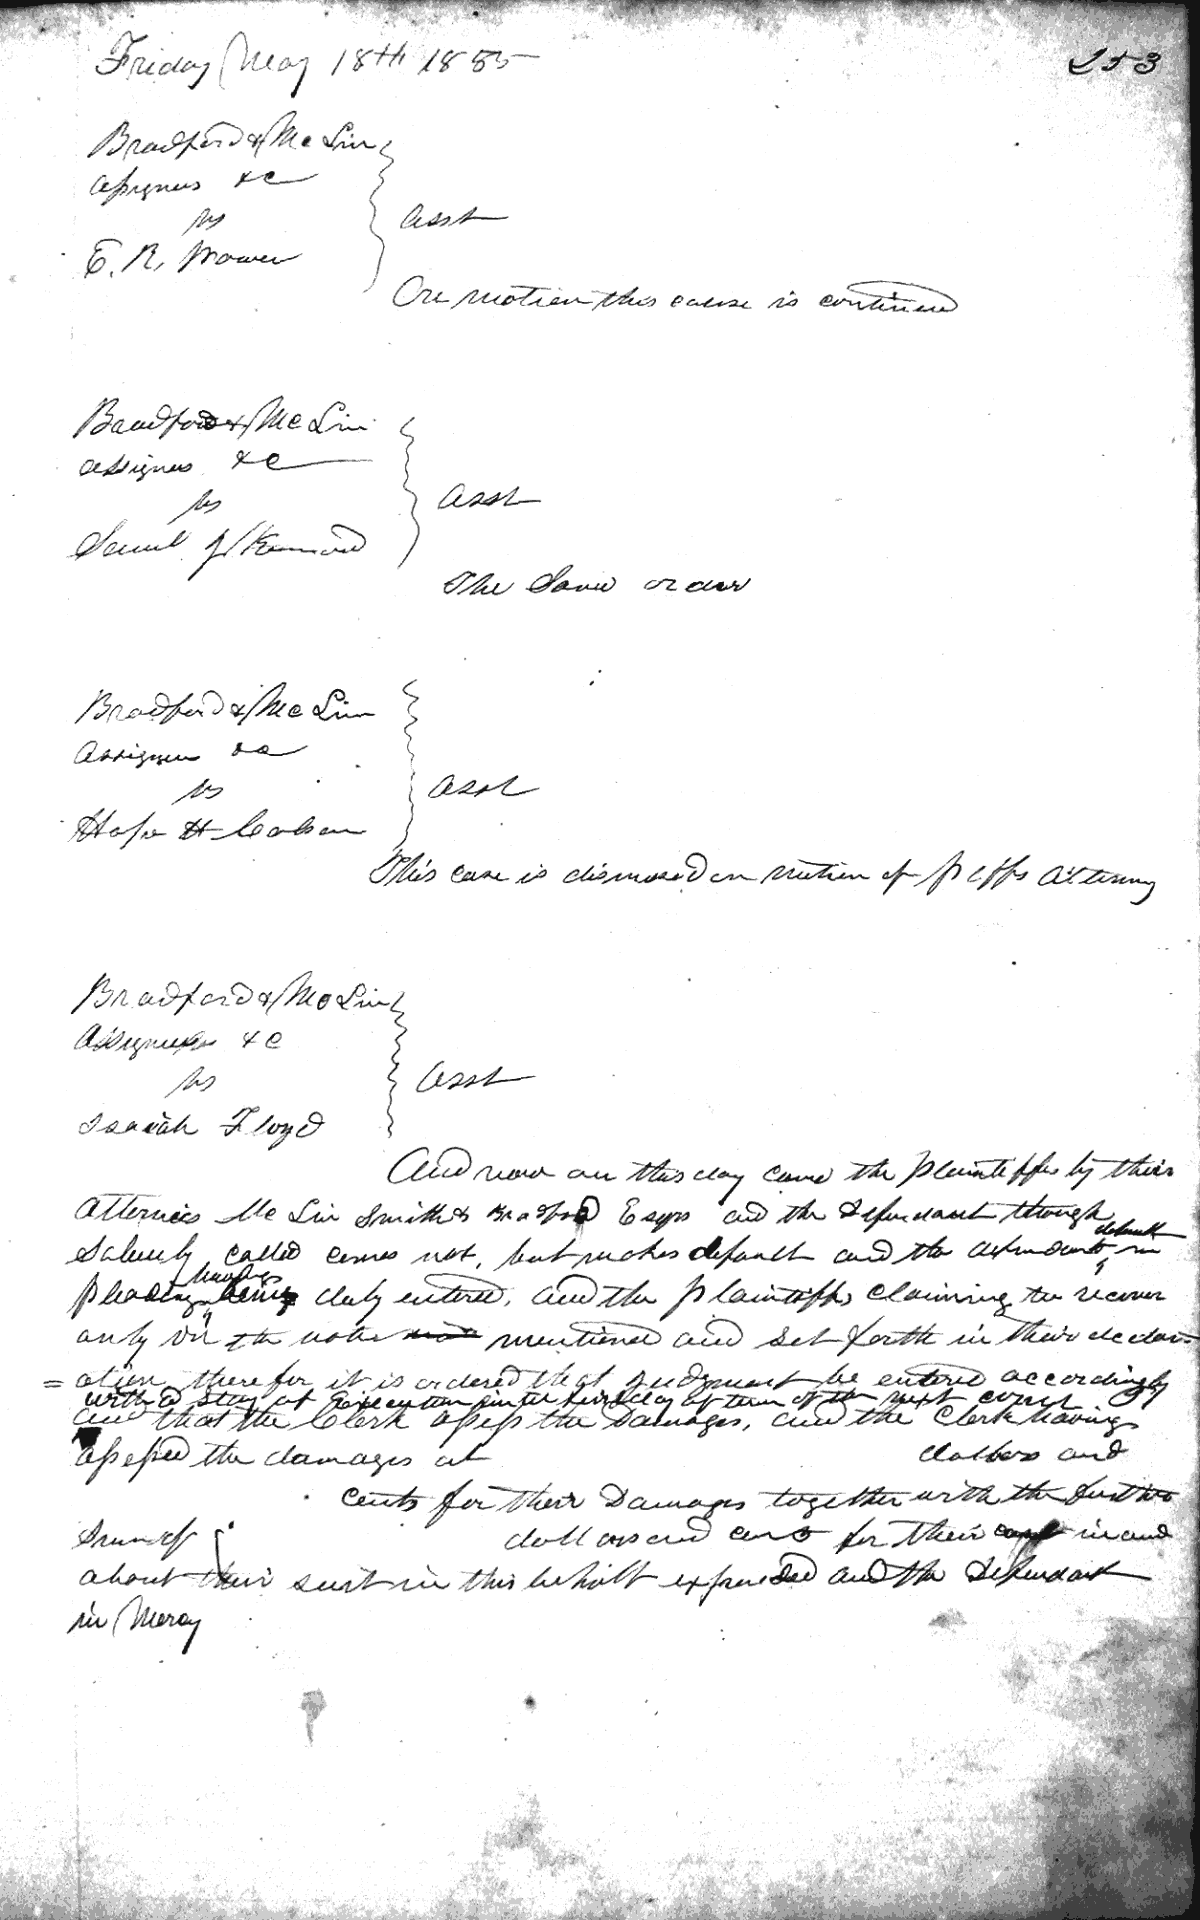 Friday May 18th 1855
253
Bradford & McLin
assignees &c
vs
E. R.
asst
On motion this cause is continued
Bradford & McLin
assignes &c
vs
Samul J Kennard
asst
The Same order
Bradford & McLin
Assignees &c
vs
Hope H
asst
This case is dismised on motion of Plffs Attorny
Bradford & McLin
Assignees &c
vs
Isaiah Floyd
asst
And now on this day came the Plaintiffs by their
Attornies Mc Lin Smith & Bradford Esqrs and the Defendant though
Solemly called comes not, but makes default and the defendants default in
pleading having being duly entered, and the Plaintiffs claiming to recover
only on the note mentioned and set forth in their declar=
=ation therefor it is ordered that Judgment be entered accordingly
with a stay of Execution until the first day of term of the next court
and that the Clerk assess the Damages, and the Clerk having
assessed the damages at dollars and
cents for their Damages together with the further
Sum of dollars and cents for their cost in and
about their suit in this behalf expended and the Defendant
in Mercy